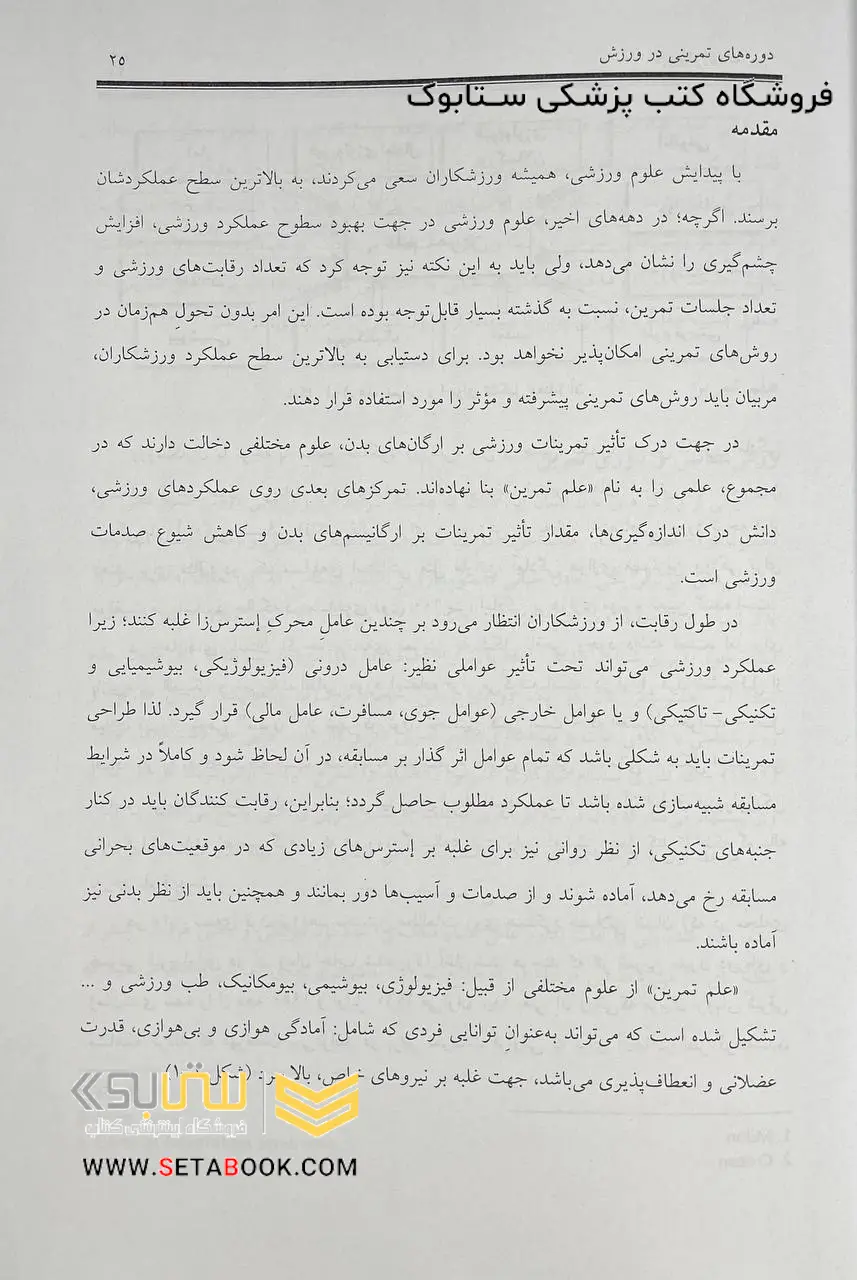 دوره‌های تمرینی در ورزش ۲۵
فروشگاه کتب پزشکی ستابوک
مقدمه
با پیدایش علوم ورزشی، همیشه ورزشکاران سعی می‌کردند، به بالاترین سطح عملکردشان
برسند. اگرچه؛ در دهه‌های اخیر، علوم ورزشی در جهت بهبود سطوح عملکرد ورزشی، افزایش
چشم‌گیری را نشان می‌دهد، ولی باید به این نکته نیز توجه کرد که تعداد رقابت‌های ورزشی و
تعداد جلسات تمرین، نسبت به گذشته بسیار قابل‌توجه بوده است. این امر بدون تحولِ هم‌زمان در
روش‌های تمرینی امکان‌پذیر نخواهد بود. برای دستیابی به بالاترین سطح عملکرد ورزشکاران،
مربیان باید روش‌های تمرینی پیشرفته و مؤثر را مورد استفاده قرار دهند.
در جهت درک تأثیر تمرینات ورزشی بر ارگان‌های بدن، علوم مختلفی دخالت دارند که در
مجموع، علمی را به نام «علم تمرین» بنا نهاده‌اند. تمرکزهای بعدی روی عملکردهای ورزشی،
دانش درک اندازه‌گیری‌ها، مقدار تأثیر تمرینات بر ارگانیسم‌های بدن و کاهش شیوع صدمات
ورزشی است.
در طول رقابت، از ورزشکاران انتظار می‌رود بر چندین عاملِ محرکِ إسترس‌زا غلبه کنند؛ زیرا
عملکرد ورزشی می‌تواند تحت تأثیر عواملی نظیر: عامل درونی (فیزیولوژیکی، بیوشیمیایی و
تکنیکی- تاکتیکی) و یا عوامل خارجی (عوامل جوی، مسافرت، عامل مالی) قرار گیرد. لذا طراحی
تمرینات باید به شکلی باشد که تمام عوامل اثر گذار بر مسابقه، در آن لحاظ شود و کاملاً در شرایط
مسابقه شبیه‌سازی شده باشد تا عملکرد مطلوب حاصل گردد؛ بنابراین، رقابت کنندگان باید در کنار
جنبه‌های تکنیکی، از نظر روانی نیز برای غلبه بر إسترس‌های زیادی که در موقعیت‌های بحرانی
مسابقه رخ می‌دهد، آماده شوند و از صدمات و آسیب‌ها دور بمانند و همچنین باید از نظر بدنی نیز
آماده باشند.
«علم تمرین» از علوم مختلفی از قبیل: فیزیولوژی، بیوشیمی، بیومکانیک، طب ورزشی و ...
تشکیل شده است که می‌تواند به‌عنوانِ توانایی فردی که شامل: آمادگی هوازی و بی‌هوازی، قدرت
عضلانی و انعطاف‌پذیری می‌باشد، جهت غلبه بر نیروهای خاص، بالا (شکل
ستابوک
فروشگاه اینترنتی کتاب
WWW.SETABOOK.COM